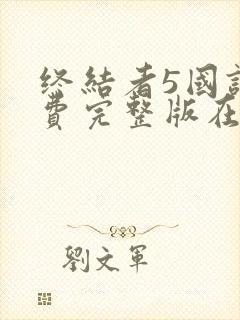 终結者5國
費完整版在
劉文軍